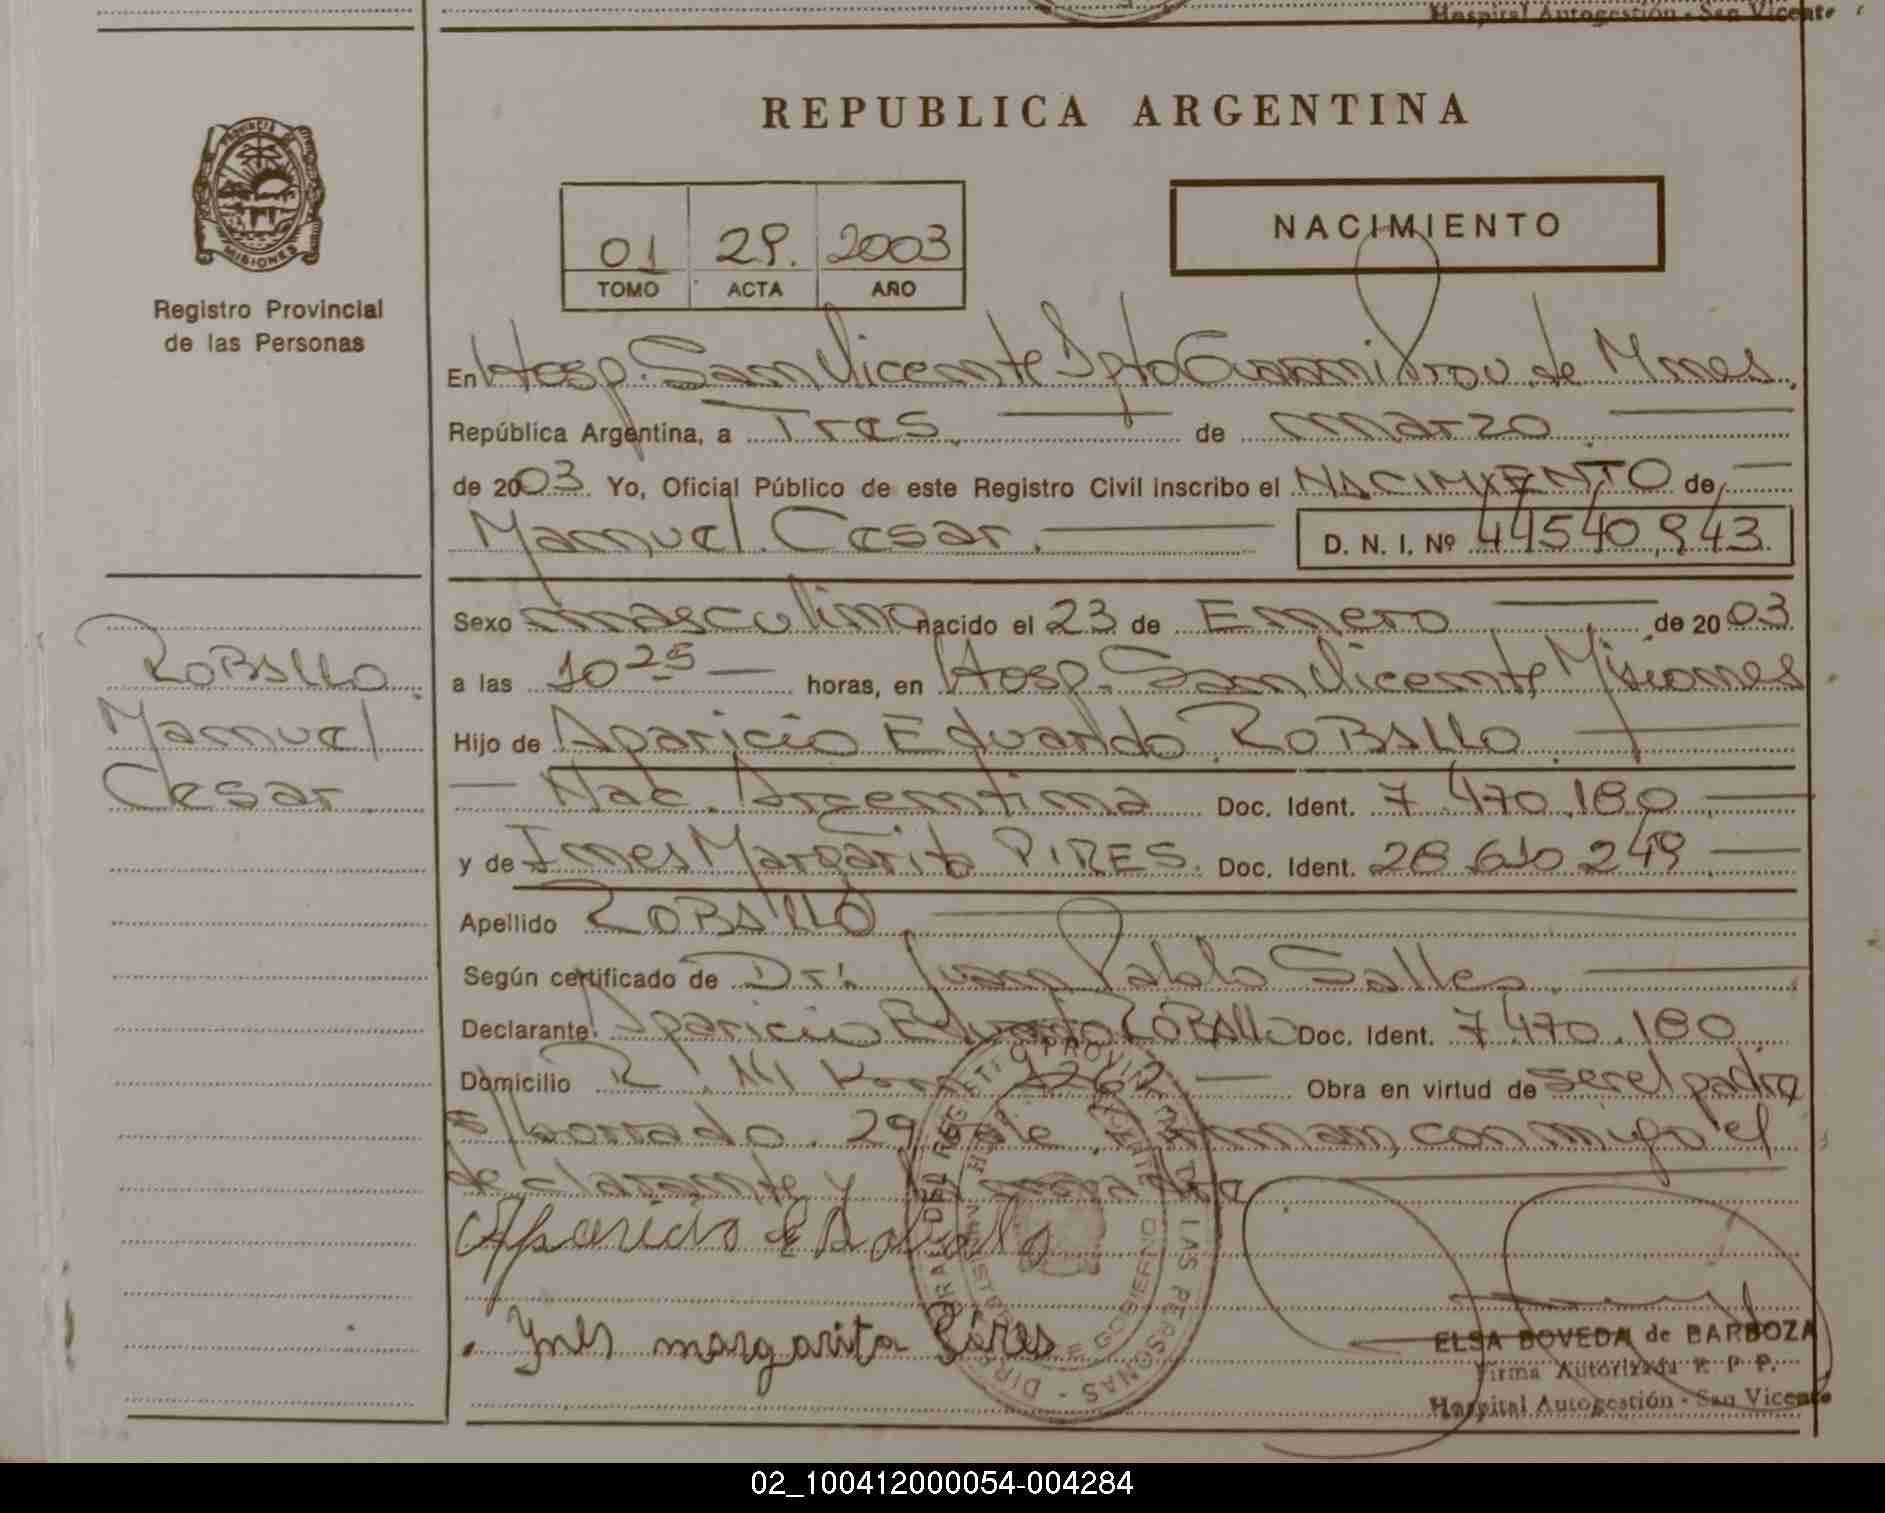 Hospital Autogestión - San Vicente
REPUBLICA ARGENTINA
PROVINCIA
MISIONES
Registro Provincial
de las Personas
01 29. 2003
TOMO ACTA AÑO
NACIMIENTO
En Hosp. San Vicente Dpto Guarani Prov. de Mnes.
República Argentina, a Tres. de marzo
de 2003. Yo, Oficial Público de este Registro Civil inscribo el NACIMIENTO de
Manuel Cesar. D. N. I. Nº 44540.943.
Sexo masculino nacido el 23 de Enero de 2003.
a las 10 25 horas, en Hosp. San Vicente, Misiones
Hijo de Aparicio Eduardo ROBALLO.
Nac. Argentina Doc. Ident. 7.470.180
y de Ines Margarita PIRES. Doc. Ident. 28.610.249
Apellido ROBALLO
Según certificado de Dr: Juan Pablo Salles.
Declarante. Aparicio Eduardo ROBALLO Doc. Ident. 7.470.180
Domicilio R. N Km 1262 Obra en virtud de ser el padre
borrado. 29 Vale. Firman, conmigo el
declarante y la madre
ROBALLO.
Manuel
Cesar.
Aparicio E Roballo
Ynes margarita Píres
ELSA BOVEDA de BARBOZA
Firma Autorizada R. P. P.
Hospital Autogestión - San Vicente
02_100412000054-004284